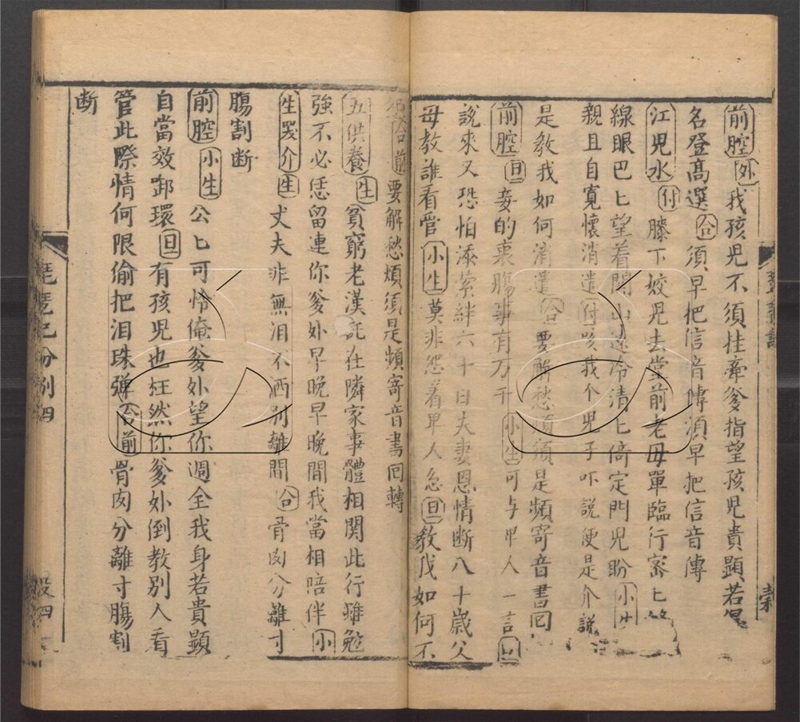 前腔 外 我孩兒不須挂牽爹指望孩兒貴顯若
名登髙選 合 須早把信音傳須早把信音傳
江兒水 付 膝下姣兒去堂前老母單臨行密匕
線眼巴匕望着関山遠冷清匕倚定門兒盼 小生
親且自寬懷消遣 付 咳我个兒子吓說便是介說
是教我如何消遣 合 要解愁煩須是頻寄音書回
前腔 旦 妾的衷腸事有万千 小生 可与卑人一言 旦
說來又恐怕添縈絆六十日夫妻恩情断八十歲父
母教誰看管 小生 莫非怨着卑人忽 旦 教我如何不
合前 要解愁煩須是頻寄音書回轉
五供養 生 貧窮老漢託在隣家事體相関此行雖勉
強不必恁留連你爹外早晚早晚間我當相陪伴 小
生哭介 生 丈夫非無泪不洒別離間 合 骨肉分離寸
腸割断
前腔 小生 公匕可怜俺爹外望你週全我身若貴顯
自當效啣環 旦 有孩兒也枉然你爹外倒教別人看
管此際情何限偷把泪珠彈 合前 骨肉分離寸腸割
断
琵琶記分別四